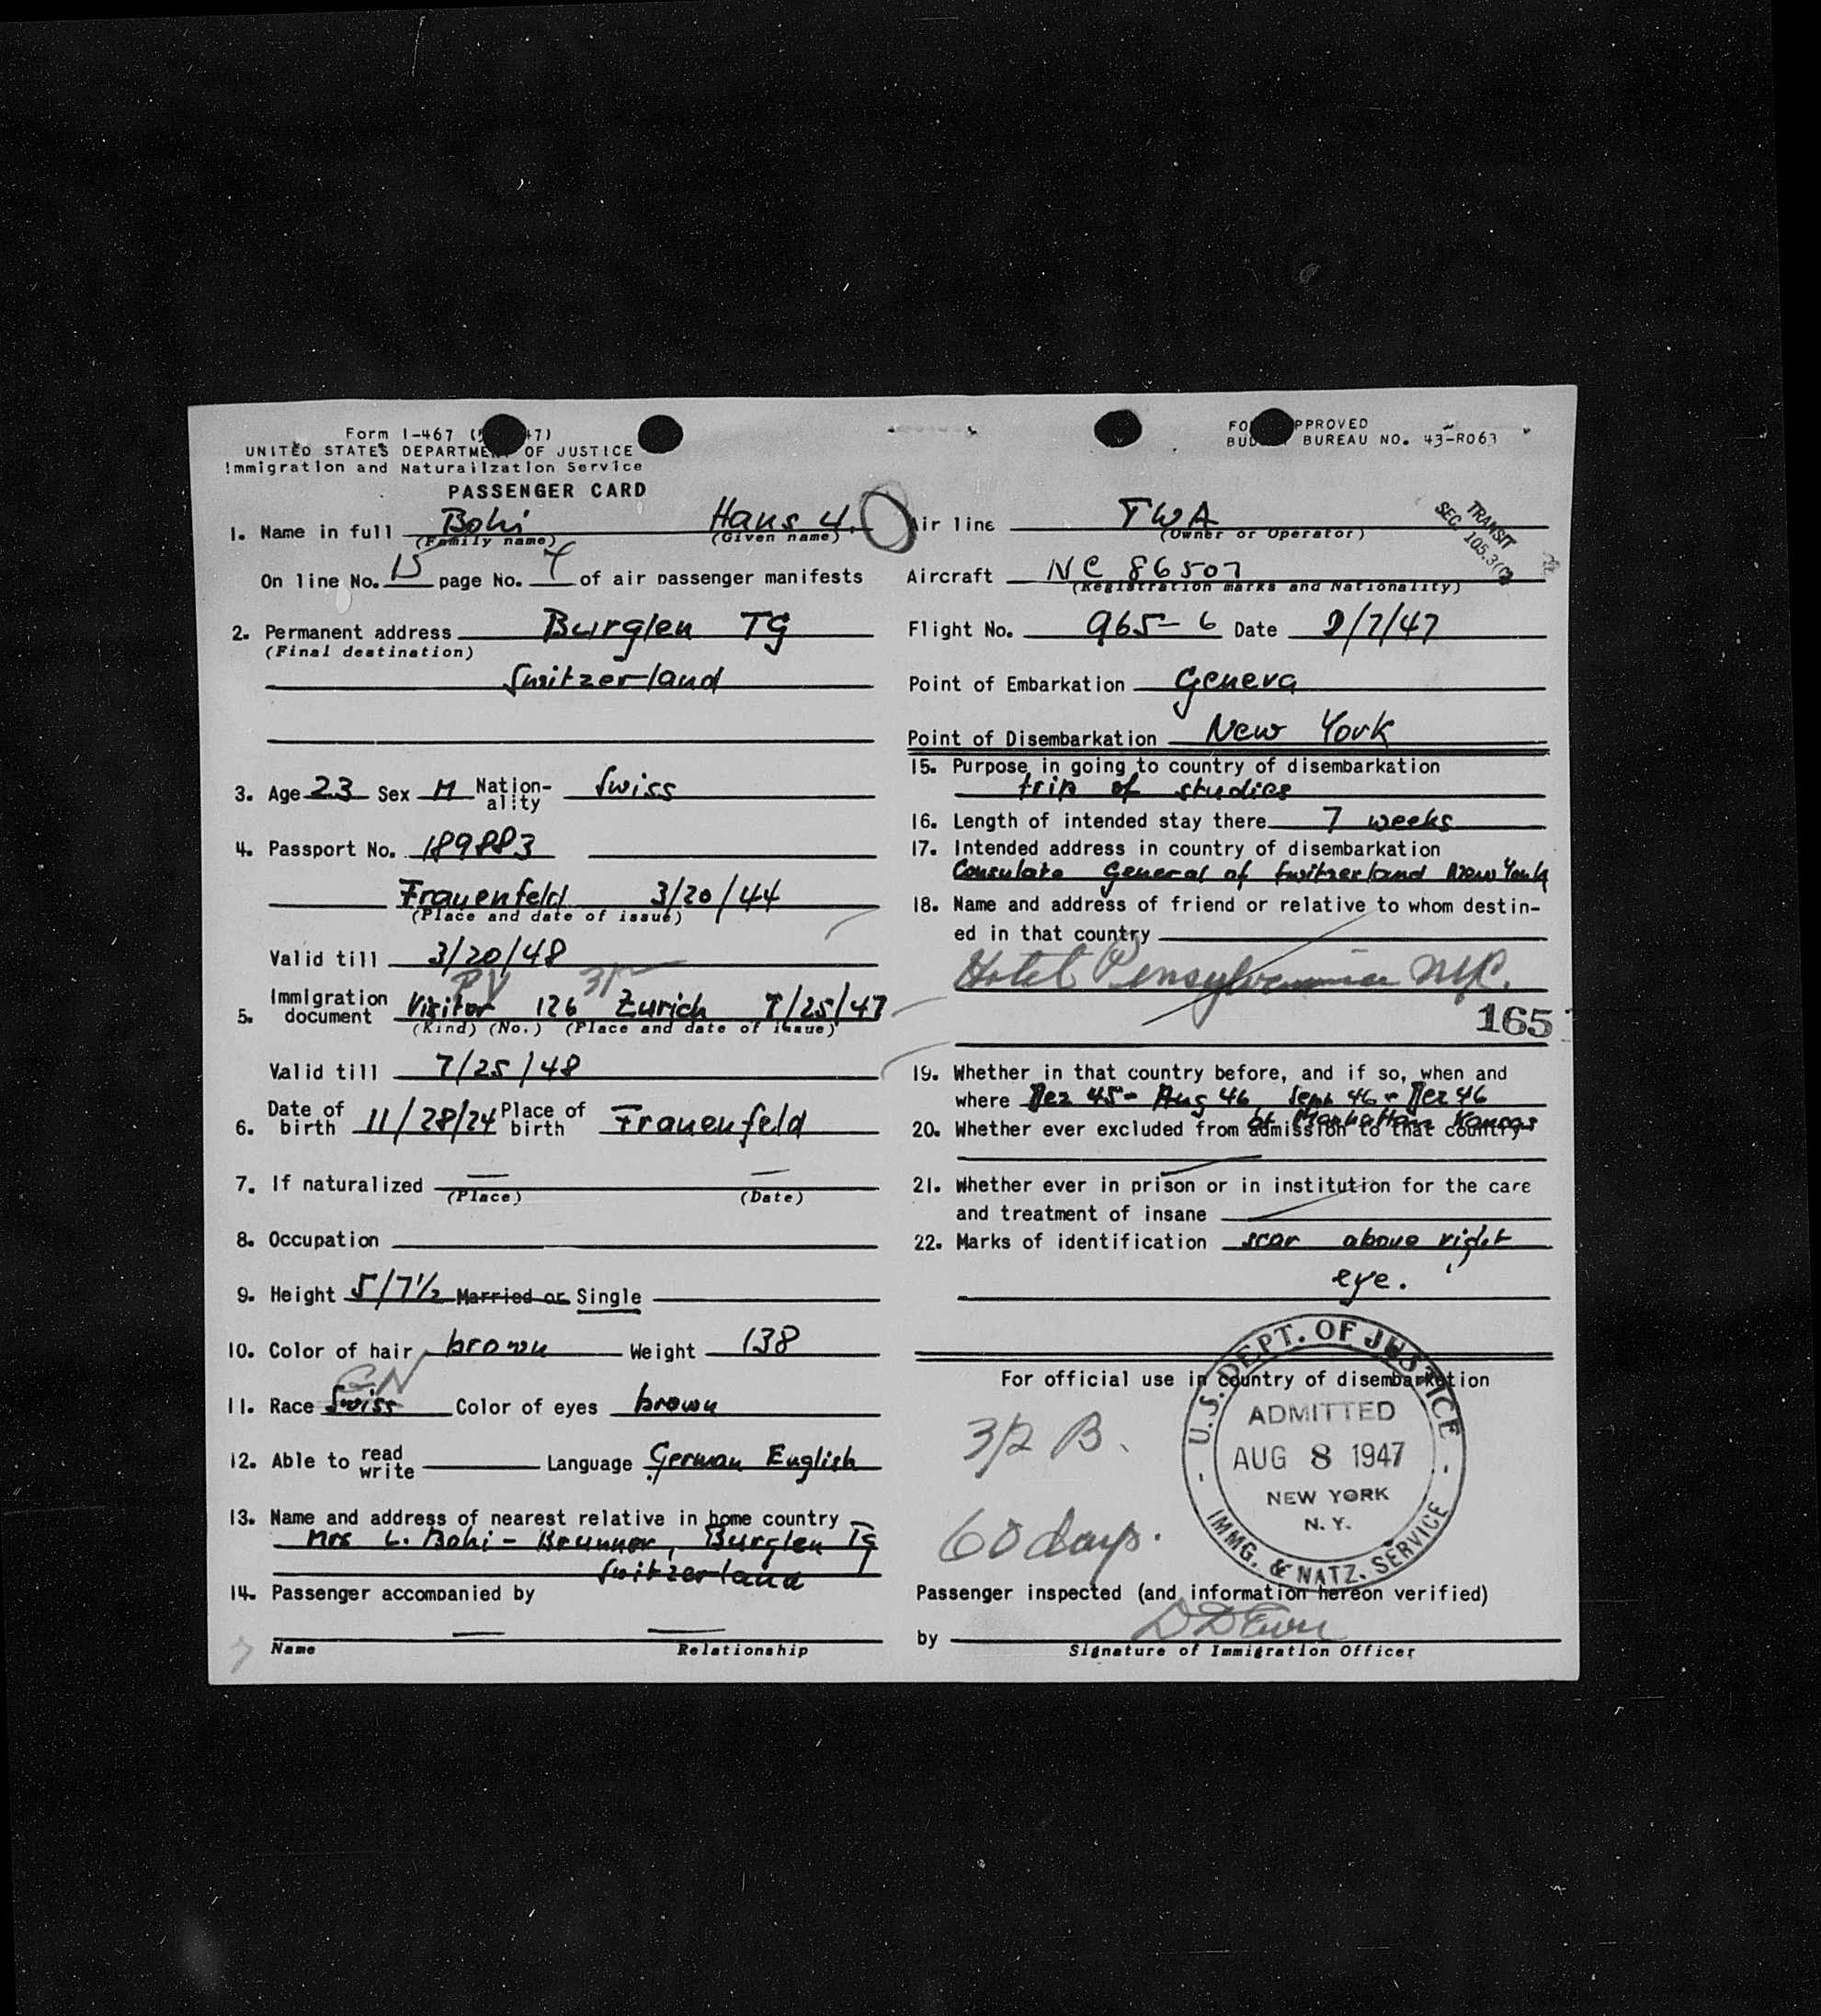 Form I-467 ( 47)
UNITED STATES DEPARTMENT OF JUSTICE
Immigration and Naturalization Service
PASSENGER CARD
1. Name in full Bohi Hans U.
(Family name) (Given name)
On line No. 15 page No. 4 of air passenger manifests
2. Permanent address Burglen TG
(Final destination)
Switzerland
3. Age 23 Sex M Nation-ality Swiss
4. Passport No. 189883
Frauenfeld 3/20/44
(Place and date of issue)
Valid till 3/20/48
PV
5. Immigration document Visitor 126 Zurich 7/25/47
(Kind) (No.) (Place and date of issue)
Valid till 7/25/48
6. Date of birth 11/28/24 Place of birth Frauenfeld
7. If naturalized — —
(Place) (Date)
8. Occupation
9. Height 5/7½ Married or Single
10. Color of hair brown Weight 138
11. Race Swiss Color of eyes brown
12. Able to read write Language German English
13. Name and address of nearest relative in home country
Mrs L. Bohi - Brunner, Burglen TG
Switzerland
14. Passenger accompanied by
— —
Name Relationship
FO PPROVED
BUD BUREAU NO. 43-R063
TRANSIT
SEC. 105.3
Air line TWA
(Owner or Operator)
Aircraft NC 86507
(Registration marks and Nationality)
Flight No. 965-6 Date 8/7/47
Point of Embarkation Geneva
Point of Disembarkation New York
15. Purpose in going to country of disembarkation
trip of studies
16. Length of intended stay there 7 weeks
17. Intended address in country of disembarkation
Consulate General of Switzerland New York
18. Name and address of friend or relative to whom destin-
ed in that country
Hotel Pensylvannia NYC.
165
19. Whether in that country before, and if so, when and
where Dez 45 - Aug 46 Sept 46 - Dez 46
at Manhattan Kansas
20. Whether ever excluded from admission to that country
21. Whether ever in prison or in institution for the care
and treatment of insane
22. Marks of identification scar above right
eye.
For official use in country of disembarkation
3/2 B.
60 days.
U.S. DEPT. OF JUSTICE
ADMITTED
AUG 8 1947
NEW YORK
N. Y.
IMMG. & NATZ. SERVICE
Passenger inspected (and information hereon verified)
by
Signature of Immigration Officer